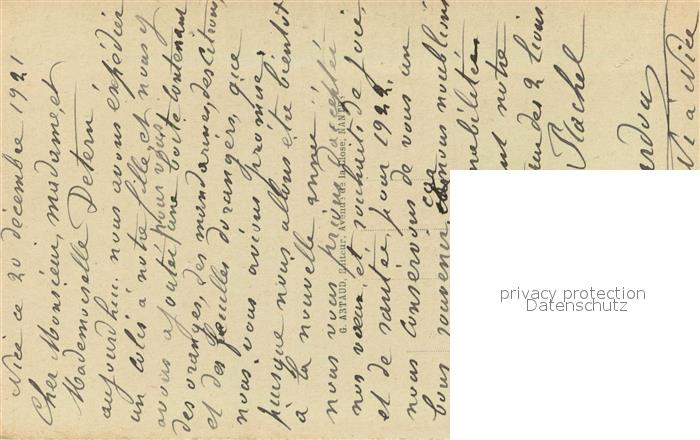 Nice ce 20 décembre 1921
Cher Monsieur, madame, et
Mademoiselle Detern
aujourd'hui nous avons expédier
un colis à notre fille et nous y
avons ajouter pour vous une boîte contenant
des oranges, des mandarines, des citrons,
et des feuilles d'orangers, que
nous vous avions promise,
puisque nous allons être bientôt
à la nouvelle année,
nous vous prions d'accepter
nos vœux et souhaits de joie,
et de santée, pour 1922.
nous conservons de vous un
bons souvenir, car nous n'oublions
amabilitées
notre
des 2 lions
Rachel
Nice
G. ARTAUD, Editeur, Avenue de la Close, NANTES
privacy protection
Datenschutz